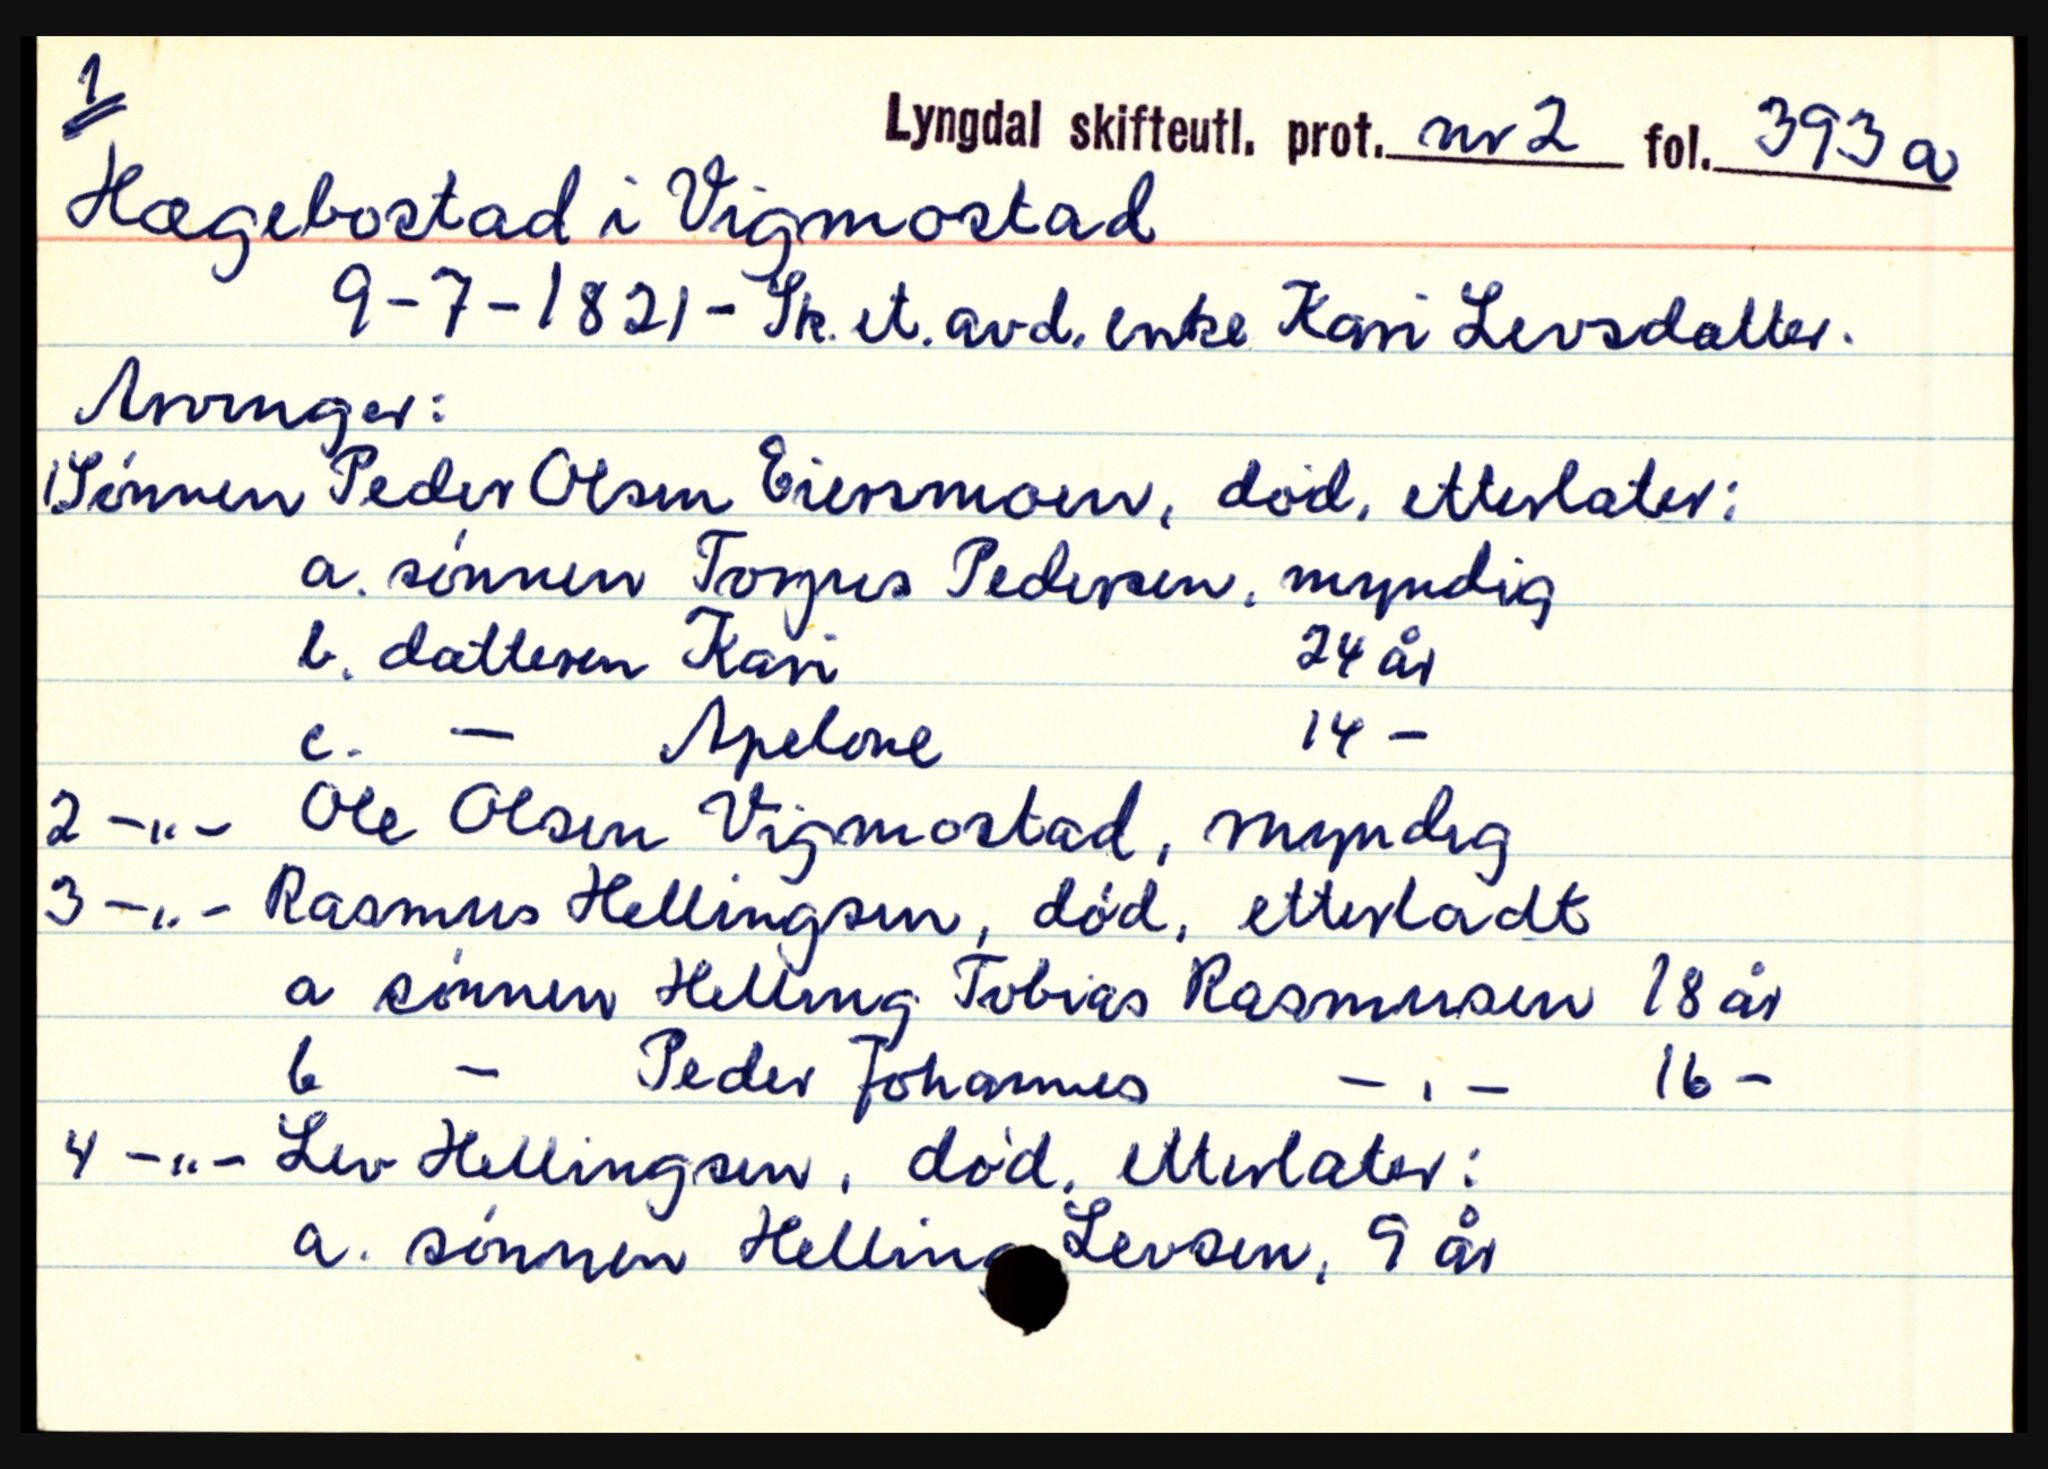 1
Lyngdal skifteutl. prot. nr 2 fol. 393 a
Hægebostad i Vigmostad
9-7-1821 - Sk. et. avd. enke Kari Levsdatter.
Arvinger:
1) Sønnen Peder Olsen Eiersmoen, død, etterlater:
a. sønnen Torjus Pedersen, myndig
b. datteren Kari 24 år
c. — Apelone 14 -
2 -"- Ole Olsen Vigmostad, myndig
3 -"- Rasmus Hellingsen, død, etterladt
a sønnen Helling Tobias Rasmussen 18 år
b - Peder Johannes - , - 16 -
4 -"- Lev Hellingsen, død, etterlater:
a. sønnen Helling Levsen, 9 år